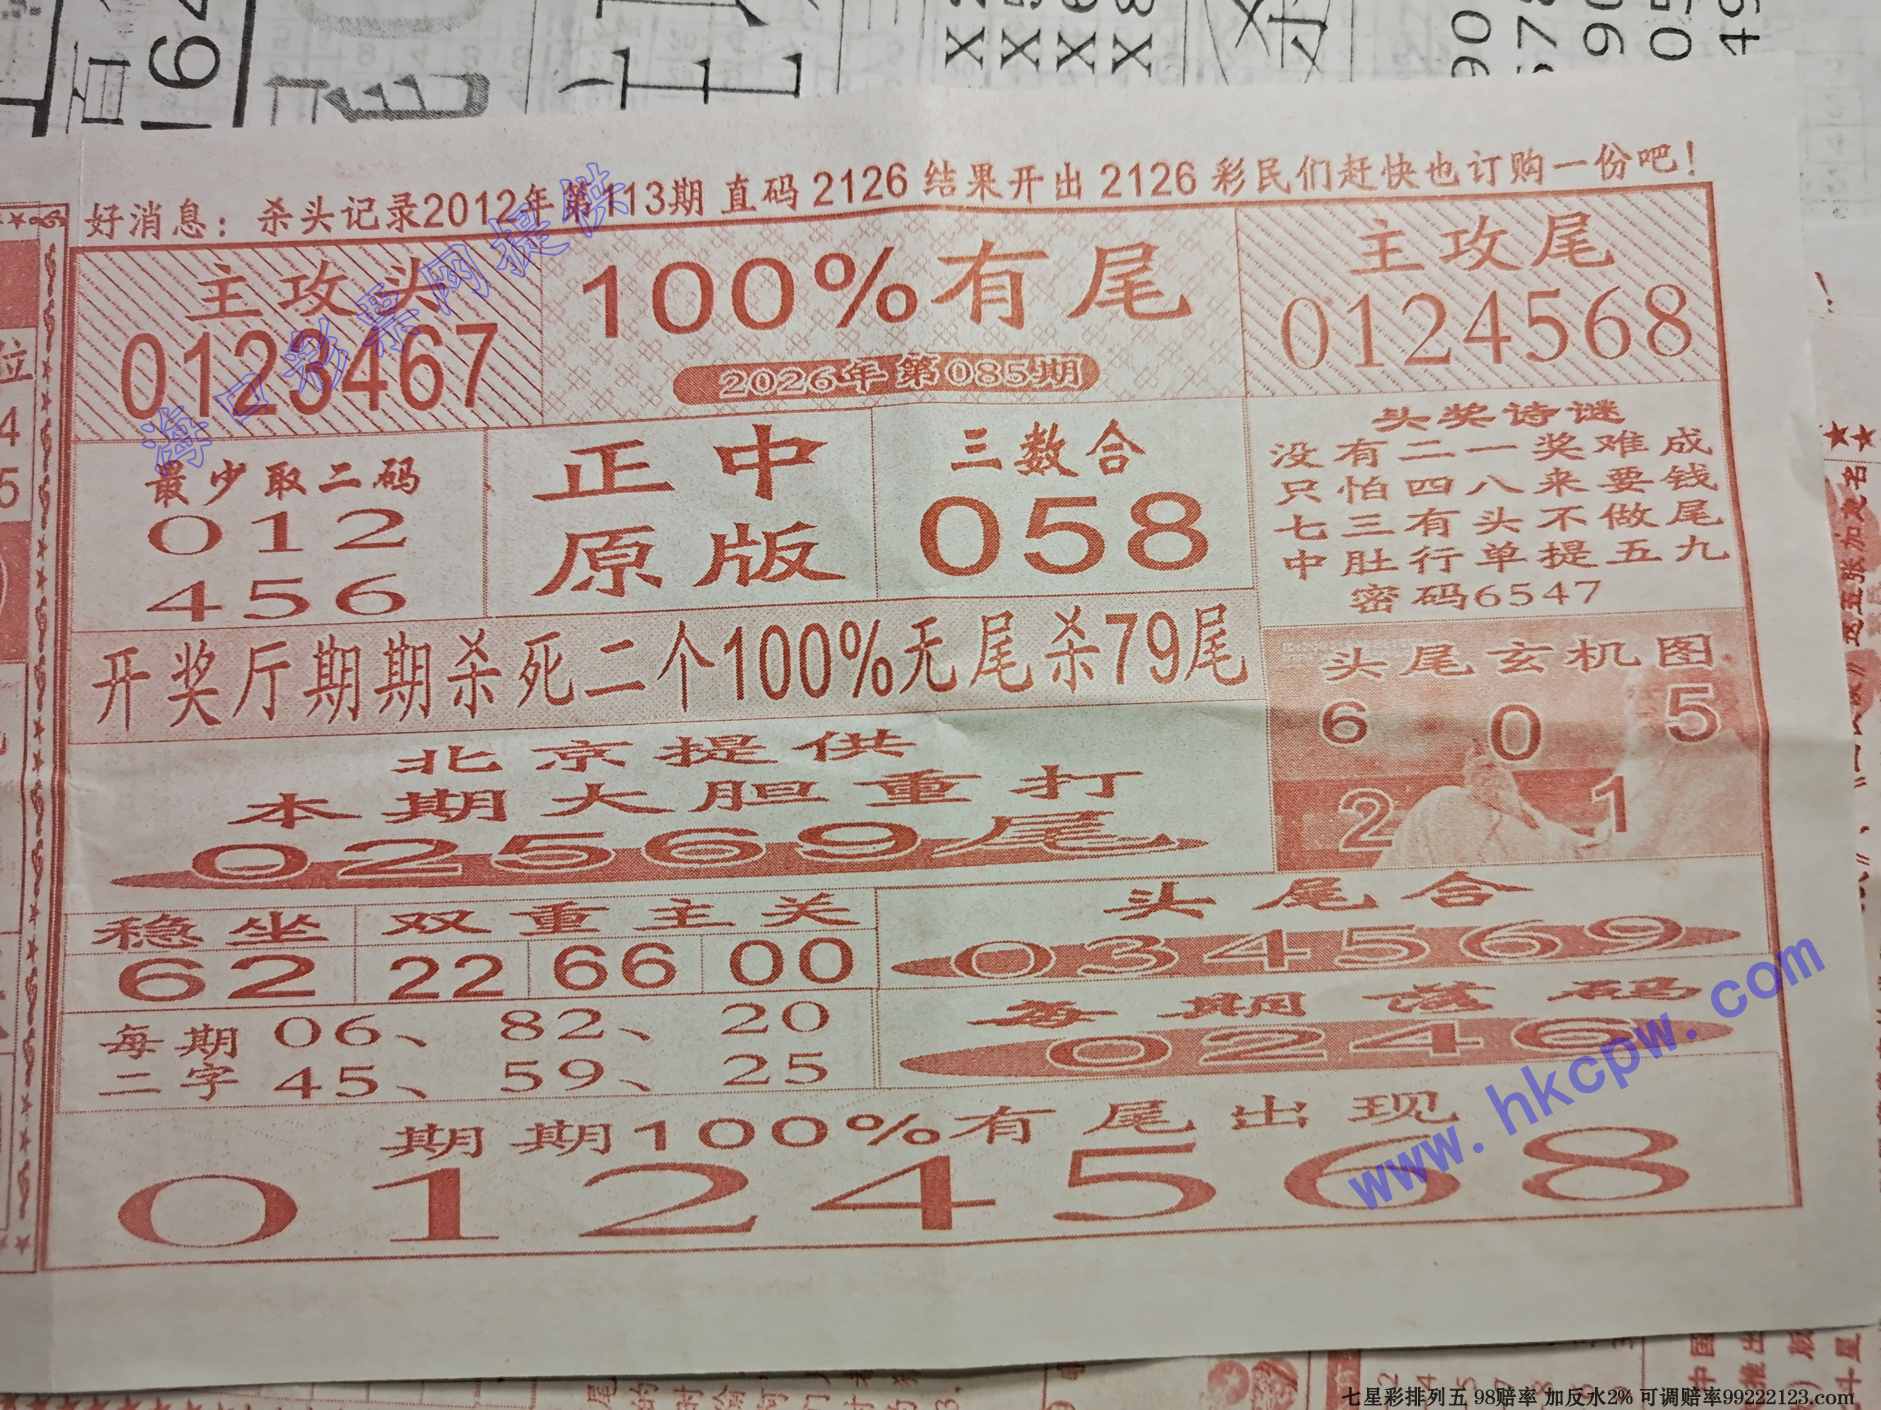 好消息：杀头记录2012年第113期 直码 2126 结果开出 2126 彩民们赶快也订购一份吧！
主攻头
0123467
100%有尾
2026年第085期
主攻尾
0124568
最少取二码
012
456
正中
原版
三数合
058
头奖诗谜
没有二一奖难成
只怕四八来要钱
七三有头不做尾
中肚行单提五九
密码6547
开奖厅期期杀死二个100%无尾杀79尾
头尾玄机图
6 0 5
2 1
北京提供
本期大胆重打
02569尾
稳坐
62
双重主关
22 66 00
头尾合
034569
每期
二字
06、82、20
45、59、25
每期落码
0246
期期100%有尾出现
0124568
海口彩票网提供
www.hkcpw.com
七星彩排列五 98赔率 加反水2% 可调赔率99222123.com